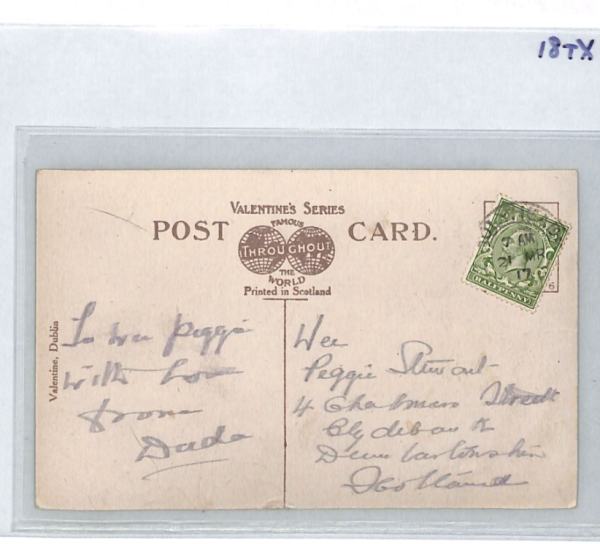 18TX
VALENTINE'S SERIES
POST CARD.
FAMOUS
THROUGHOUT
THE
WORLD
Printed in Scotland
7 AM
21 MR
17
HALFPENNY
Valentine, Dublin
To wee Peggie
with love
from
Dada
Wee
Peggie Stewart
4 Chalmers Street
Clydebank
Dumbartonshire
Scotland